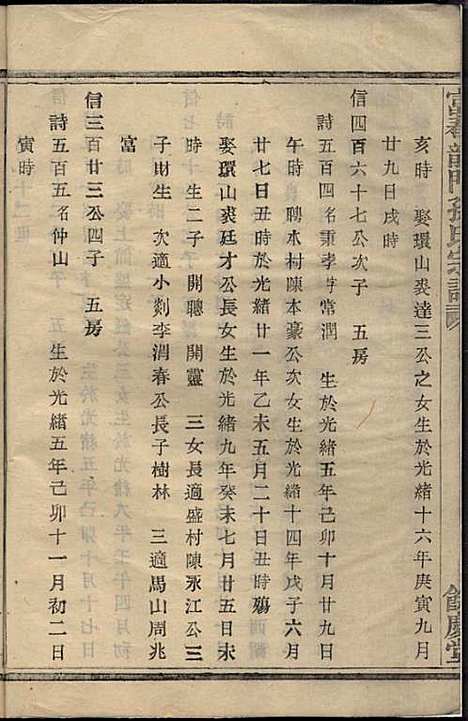 富春龍門孫氏宗譜
餘慶堂
亥時　娶環山裘達三公之女生於光緒十六年庚寅九月
廿九日戌時
信四百六十七公次子　五房
詩五百四名秉孝字常潤　生於光緒五年己卯十月廿九日
午時　聘水村陳本豪公次女生於光緒十四年戊子六月
廿七日丑時於光緒廿一年乙未五月二十日丑時殤
娶環山裘廷才公長女生於光緒九年癸未七月廿五日未
時　生二子　開聰　開靈　三女長適盛村陳永江公三
子財生　次適小剡李渭春公長子樹林　三適馬山周兆
富
信三百廿三公四子　五房
詩五百五名仲山　生於光緒五年己卯十一月初二日
寅時